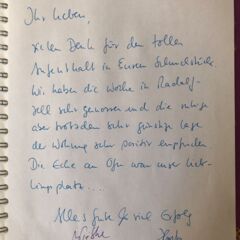 Ihr Lieben,
vielen Dank für den tollen
Aufenthalt in Eurem Schmuckstück.
Wir haben die Woche in Radolf-
zell sehr genossen und die ruhige
aber trotzdem sehr günstige Lage
der Wohnung sehr positiv empfunden.
Die Ecke am Ofen war unser Lieb-
lingsplatz....
Alles Gute & viel Erfolg